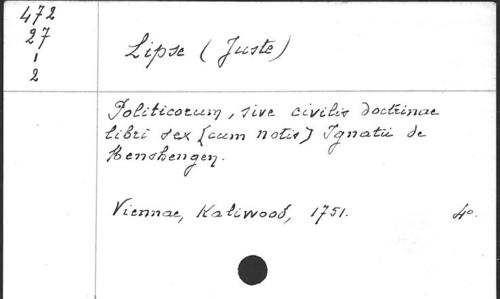 472
27
1
2
Lipse (Juste)
Politicorum, sive civilis doctrinae
libri sex [cum notis] Ignatii de
Henshengen.
Viennae, Kaliwood, 1751. 4º.